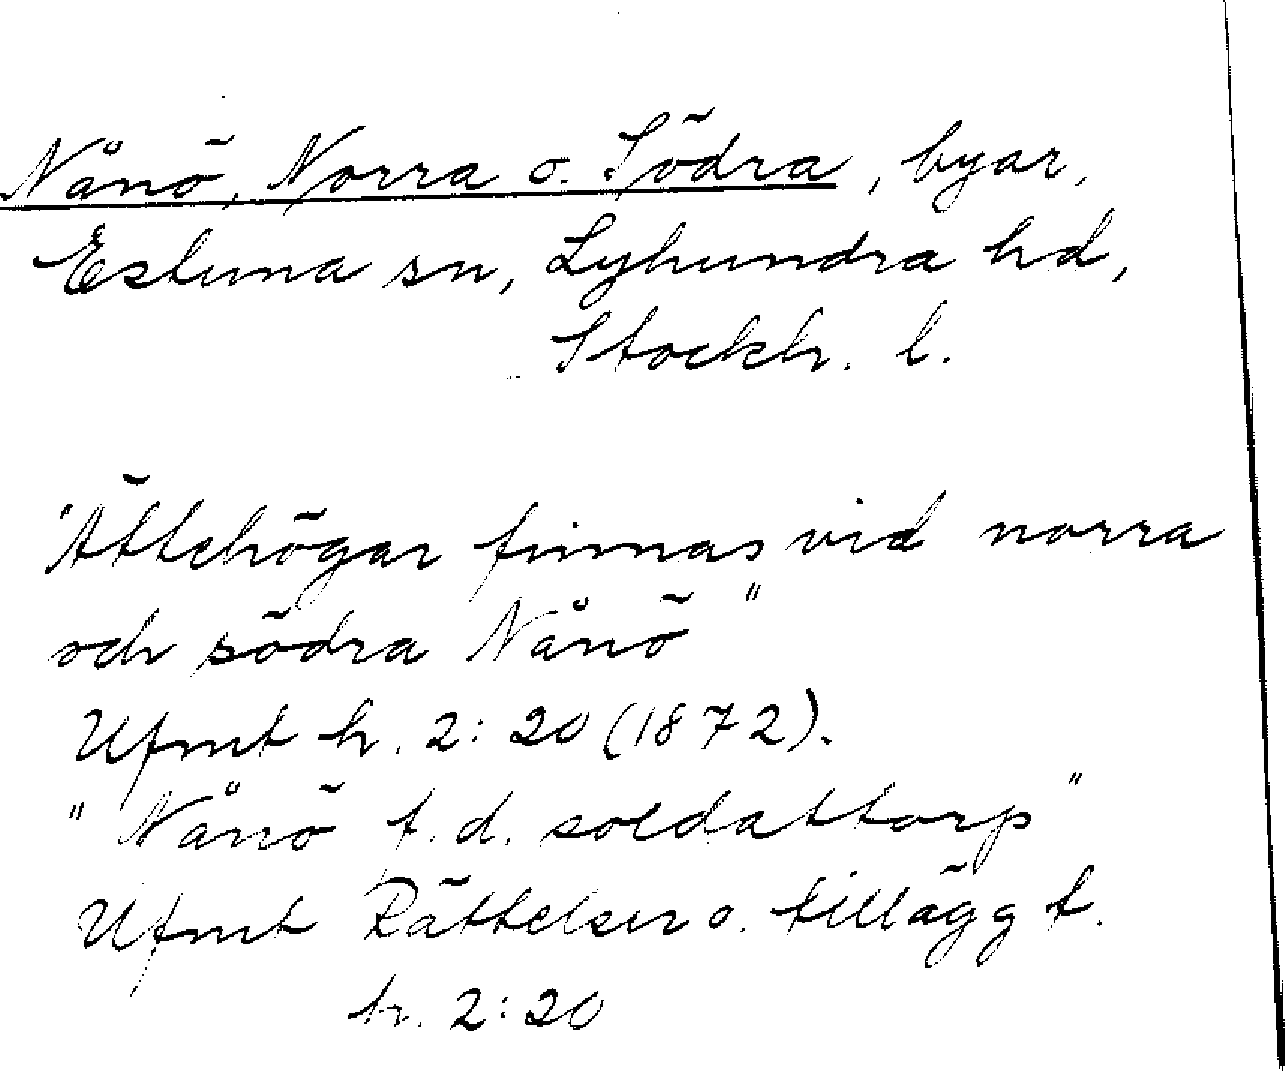 Nånö, Norra o. Södra, byar,
Estuna sn, Lyhundra hd,
Stockh. l.
"Ättehögar finnas vid norra
och södra Nånö"
Ufmt h. 2:20 (1872).
"Nånö f.d. soldattorp"
Ufmt Rättelser o. tillägg t.
h. 2:20